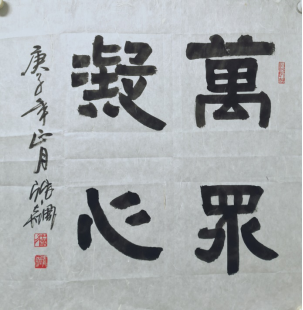 萬眾
凝心
庚子年正月